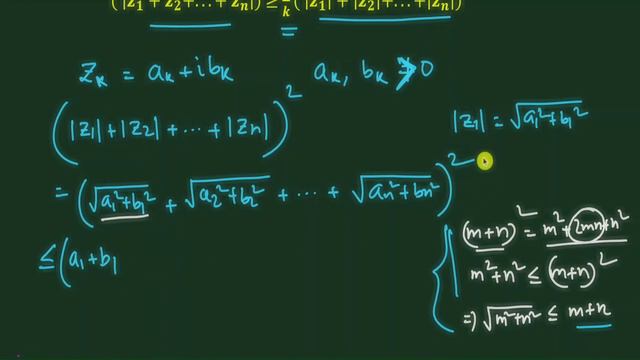 (|z₁ + z₂+...+ zₙ|) ≥ 1/k (|z₁| + |z₂|+...+|zₙ|)
zₖ = aₖ + i bₖ aₖ, bₖ ≥ 0
(|z₁| + |z₂| + ... + |zₙ|)²
|z₁| = √(a₁² + b₁²)
= (√(a₁² + b₁²) + √(a₂² + b₂²) + ... + √(aₙ² + bₙ²))²
(m+n)² = m² + 2mn + n²
≤ (a₁ + b₁
m² + n² ≤ (m+n)²
⇒ √(m² + n²) ≤ m + n